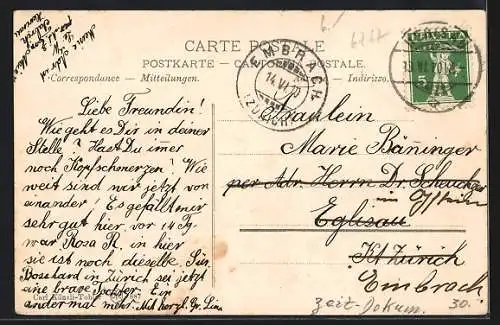 Meine Adr.
CARTE POSTALE
POSTKARTE - CARTOLINA POSTALE.
Correspondance - Mitteilungen.
Indirizzo.
EMBRACH
14.VI.
(ZÜRICH)
5
Liebe Freundin!
Wie geht es Dir in deiner
Stelle? Hast Du immer
noch Kopfschmerzen? Wie
weit sind wir jetzt von
einander! Es gefällt mir
sehr gut hier, vor 14 Tg.
war Rosa R. in hier
sie ist noch dieselbe.
Bosshard in Zürich sei jetzt
eine brave Tochter. Ein
andermal mehr. Mit herzl. Gr. Lina
Fräulein
Marie Bänninger
per Adr. Herrn Dr. Scheuchzer
in
Eglisau
Kt. Zürich
Embrach
Carl Künzli-Tobler, Zürich
Zeit-Dokum.
30.-